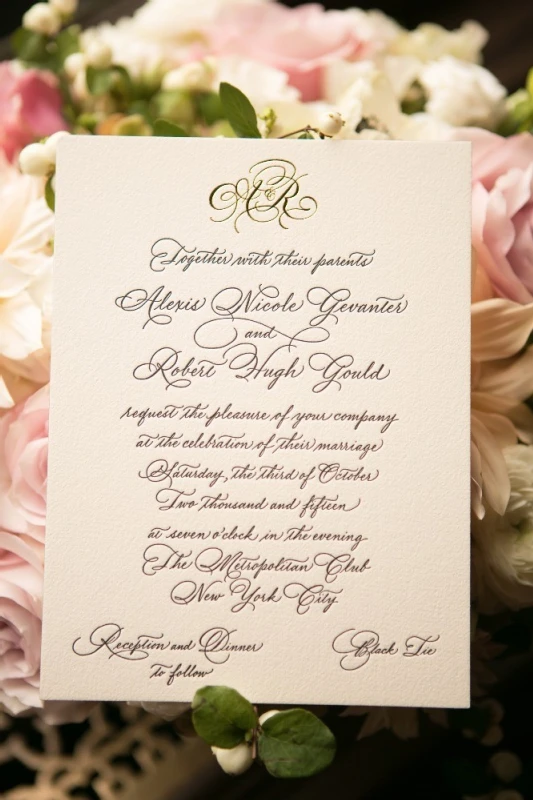 A & R
Together with their parents
Alexis Nicole Gevanter
and
Robert Hugh Gould
request the pleasure of your company
at the celebration of their marriage
Saturday, the third of October
Two thousand and fifteen
at seven o'clock in the evening
The Metropolitan Club
New York City
Reception and Dinner
to follow
Black Tie